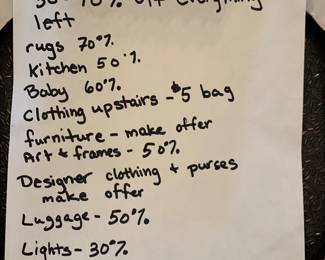 % off everything
left
rugs 70%
Kitchen 50%
Baby 60%
Clothing upstairs - $5 bag
furniture - make offer
Art & frames - 50%
Designer clothing & purses
make offer
Luggage - 50%
Lights - 30%